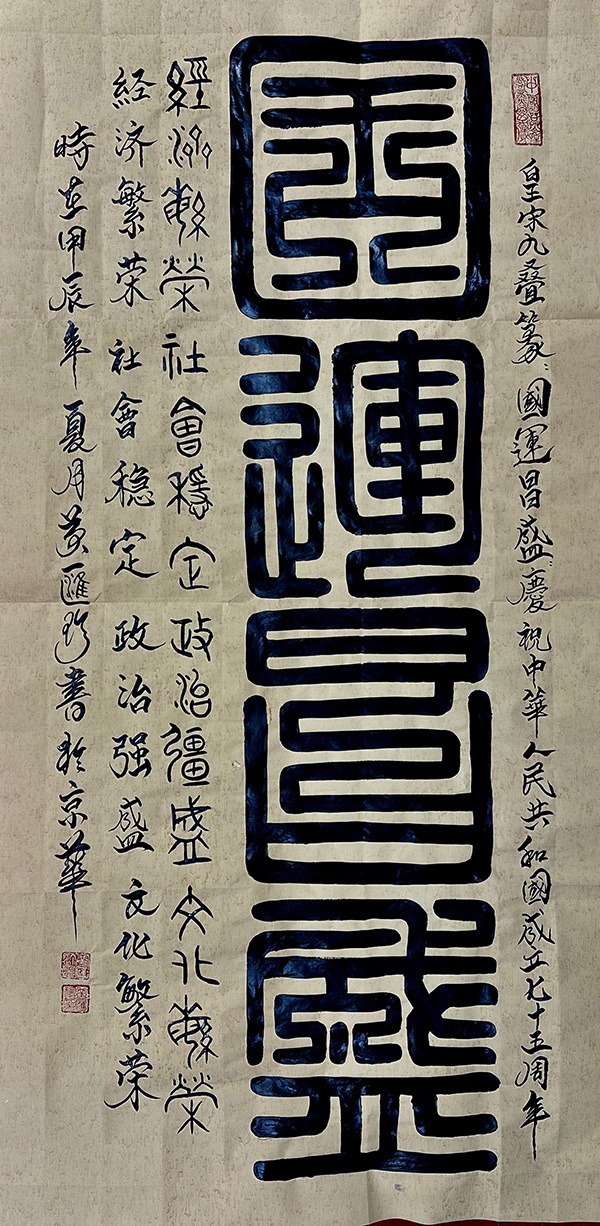 皇宋九叠篆：國運昌盛：慶祝中華人民共和國成立七十五周年
國運昌盛
經濟繁榮社會穩定政治彊盛文化繁榮
经济繁荣社會稳定政治强盛文化繁荣
時在甲辰年夏月黄匯珍書於京華